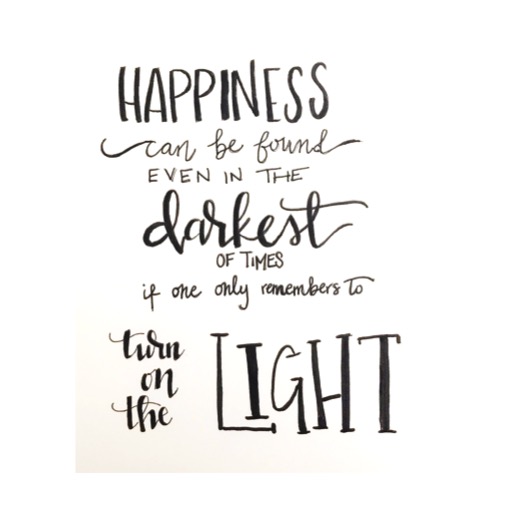 HAPPINESS
can be found
EVEN IN THE
darkest
OF TIMES
if one only remembers to
turn
on
the
LIGHT